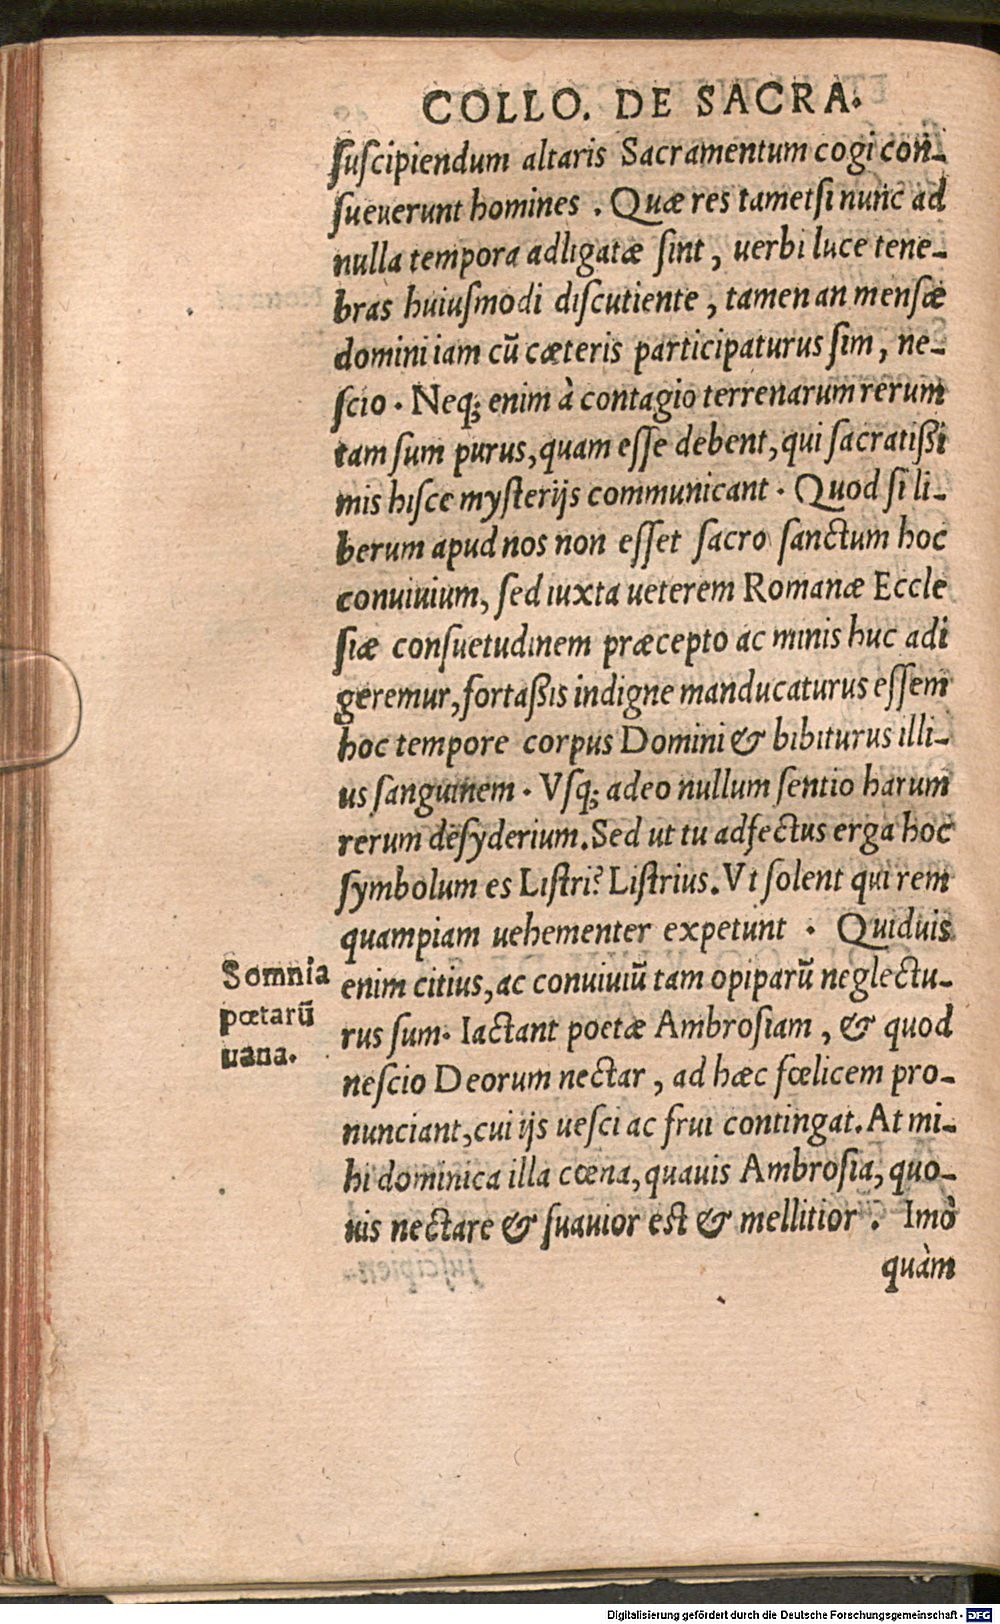 COLLO. DE SACRA.
ſuſcipiendum altaris Sacramentum cogi con-
ſueuerunt homines . Quæ res tametſi nunc ad
nulla tempora adligatæ ſint , uerbi luce tene-
bras huiuſmodi diſcutiente , tamen an menſæ
domini iam cū cæteris participaturus ſim , ne-
ſcio . Neq; enim à contagio terrenarum rerum
tam ſum purus, quam eſſe debent, qui ſacratißi
mis hiſce myſterijs communicant . Quod ſi li-
berum apud nos non eſſet ſacro ſanctum hoc
conuiuium, ſed iuxta ueterem Romanæ Eccle
ſiæ conſuetudinem præcepto ac minis huc adi
geremur, fortaßis indigne manducaturus eſſem
hoc tempore corpus Domini & bibiturus illi-
us ſanguinem . Vſq; adeo nullum ſentio harum
rerum deſyderium. Sed ut tu adfectus erga hoc
ſymbolum es Liſtri? Liſtrius. Vt ſolent qui rem
quampiam uehementer expetunt . Quiduis
Somnia
pœtarū
uana.
enim citius, ac conuiuiū tam opiparū neglectu-
rus ſum. Iactant poetæ Ambroſiam , & quod
neſcio Deorum nectar , ad hæc fœlicem pro-
nunciant, cui ijs ueſci ac frui contingat. At mi-
hi dominica illa cœna, quauis Ambroſia, quo-
uis nectare & ſuauior eſt & mellitior . Imò
quàm
Digitalisierung gefördert durch die Deutsche Forschungsgemeinschaft - DFG